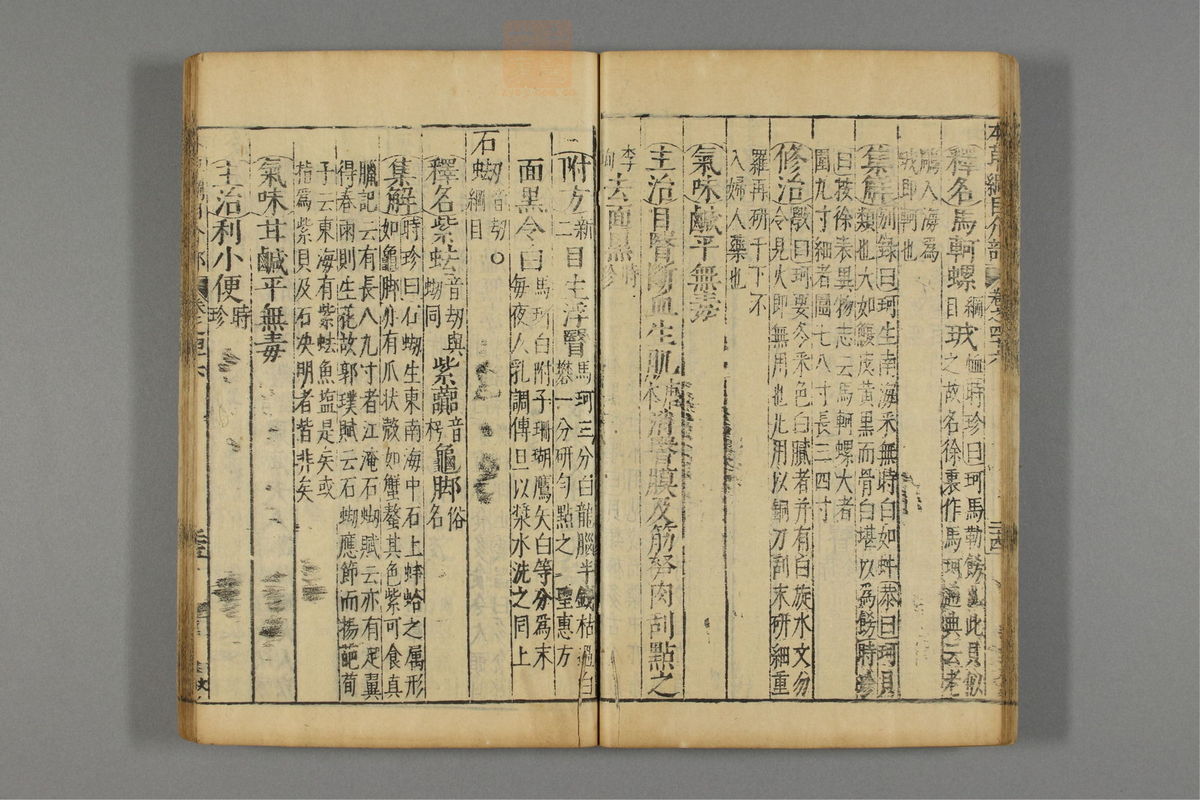 本草綱目介部 卷之四十六
釋名馬軻螺綱目 㺬 時珍曰珂馬勒飾也此貝似之故名徐表作馬軻通典云老
鵰入海為
㺬即軻也
集解 別錄曰珂生南海采無時白如蚌恭曰珂貝
類也大如鰒皮黃黑而骨白堪以為飾時珍
曰按徐表異物志云馬軻螺大者
圍九寸細者圍七八寸長三四寸
修治 斅曰珂要冬采色白膩者并有白旋水文勿
令見火即無用也凡用以銅刀刮末研細重
羅再研千下不
入婦人藥也
氣味鹹平無毒
主治目瞖斷血生肌 消瞖膜及筋弩肉刮點之
李珣 去面黑 時珍
附方 新二 目生浮瞖 馬珂三分白龍腦半錢枯過白
礬一分研勻點之 聖惠方
面黑令白 馬珂白附子珊瑚鷹矢白等分為末
每夜人乳調傅旦以漿水洗之同上
石蜐 音劫 綱目
釋名紫𧉧 音劫與蜐同 紫𧅵 音枵 龜脚 俗名
集解 時珍曰石蜐生東南海中石上蚌蛤之属形
如龜脚亦有爪狀殼如蟹螯其色紫可食真
臘記云有長八九寸者江淹石蜐賦云亦有足翼
得春雨則生花故郭璞賦云石蜐應節而揚葩荀
子云東海有紫𧉧魚塩是矣或
指為紫貝及石决明者皆非矣
氣味甘鹹平無毒
主治利小便 時珍